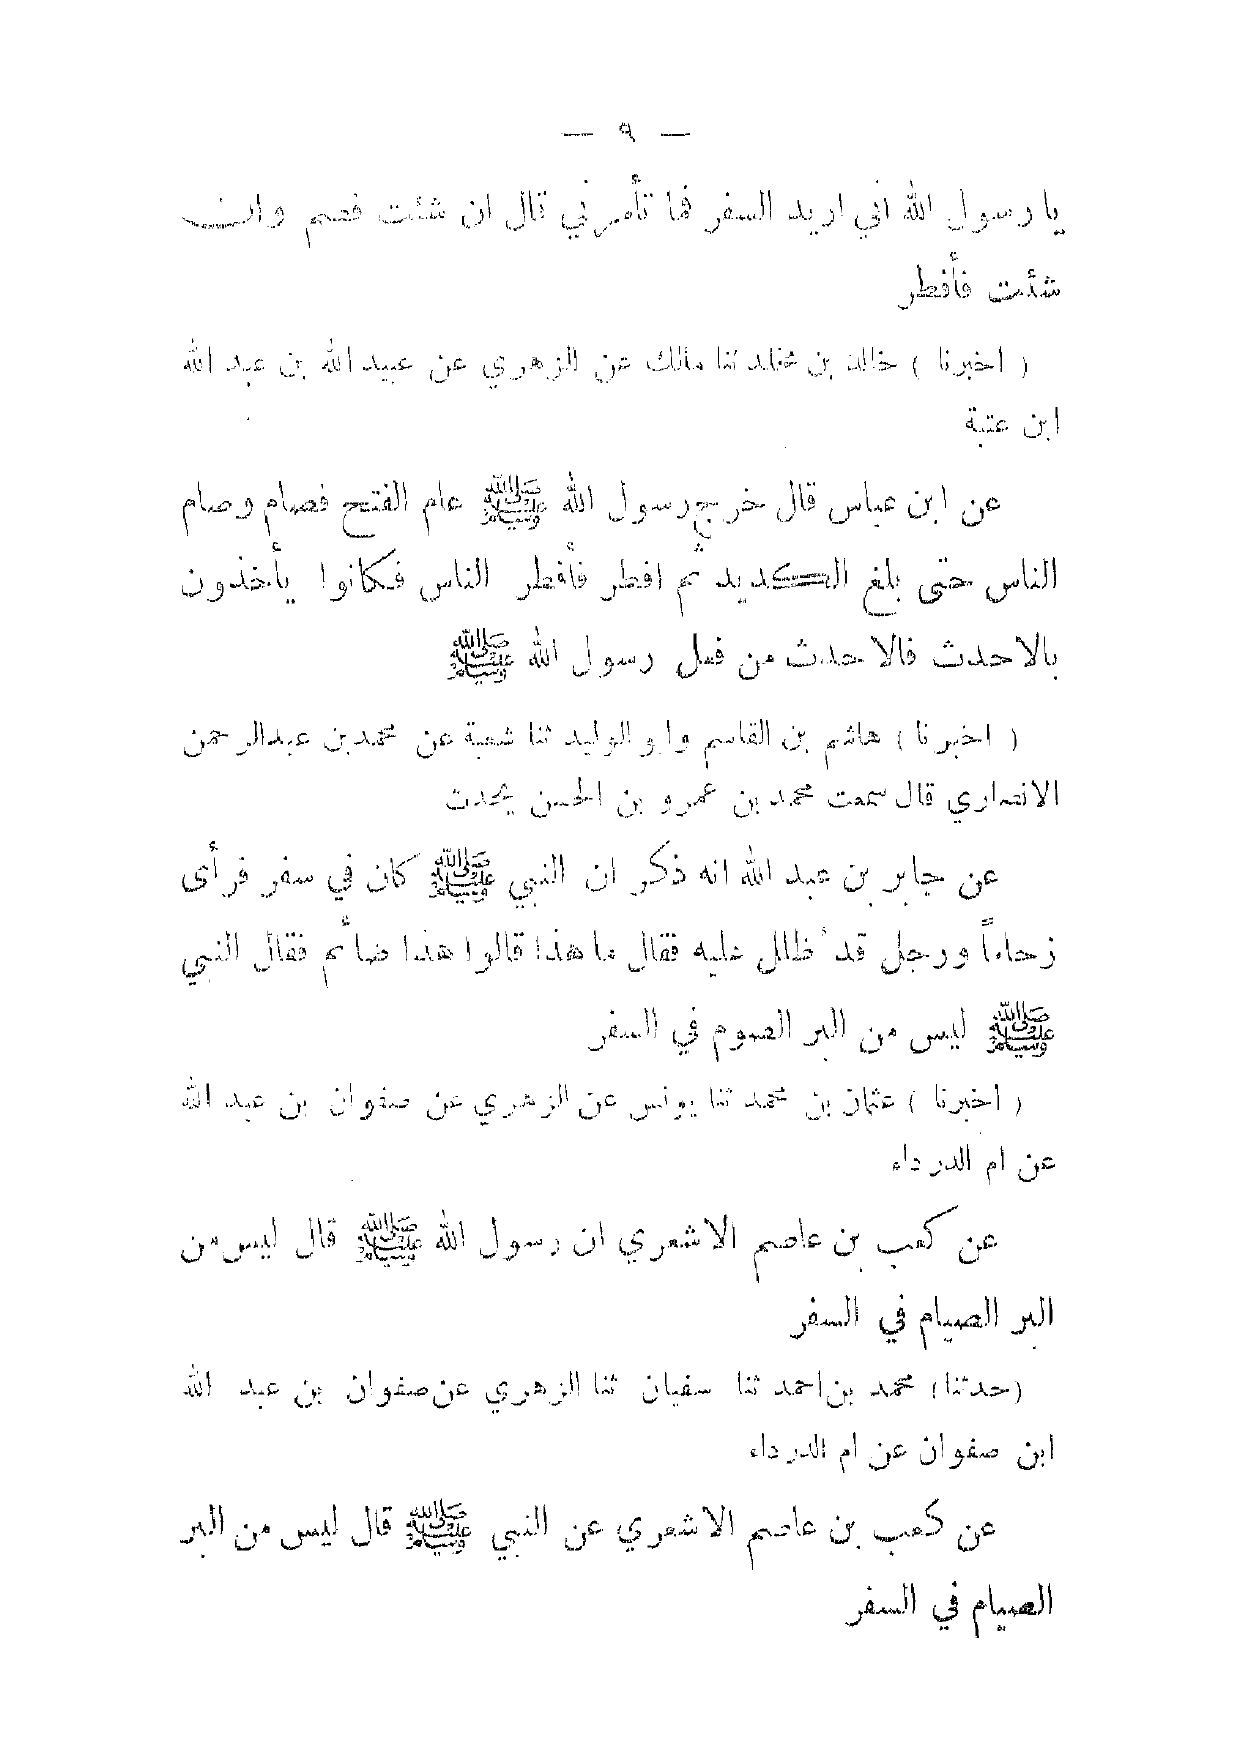 — ٩ —
يا رسول الله اني اريد السفر فما تأمرني قال ان شئت فصم وان
شئت فأفطر
( اخبرنا ) خالد بن مخلد ثنا مالك عن الزهري عن عبيد الله بن عبد الله
ابن عتبة
عن ابن عباس قال خرج رسول الله ﷺ عام الفتح فصام وصام
الناس حتى بلغ الكديد ثم افطر فأفطر الناس فكانوا يأخذون
بالاحدث فالاحدث من فعل رسول الله ﷺ
( اخبرنا ) هاشم بن القاسم وابو الوليد ثنا شعبة عن محمد بن عبدالرحمن
الانصاري قال سمعت محمد بن عمرو بن الحسن يحدث
عن جابر بن عبد الله انه ذكر ان النبي ﷺ كان في سفر فرأى
زحاماً ورجل قد ظلل عليه فقال ما هذا قالوا هذا صائم فقال النبي
ﷺ ليس من البر الصوم في السفر
( اخبرنا ) عثمان بن محمد ثنا يونس عن الزهري عن صفوان بن عبد الله
عن ام الدرداء
عن كعب بن عاصم الاشعري ان رسول الله ﷺ قال ليس من
البر الصيام في السفر
(حدثنا) محمد بن احمد ثنا سفيان ثنا الزهري عن صفوان بن عبد الله
ابن صفوان عن ام الدرداء
عن كعب بن عاصم الاشعري عن النبي ﷺ قال ليس من البر
الصيام في السفر